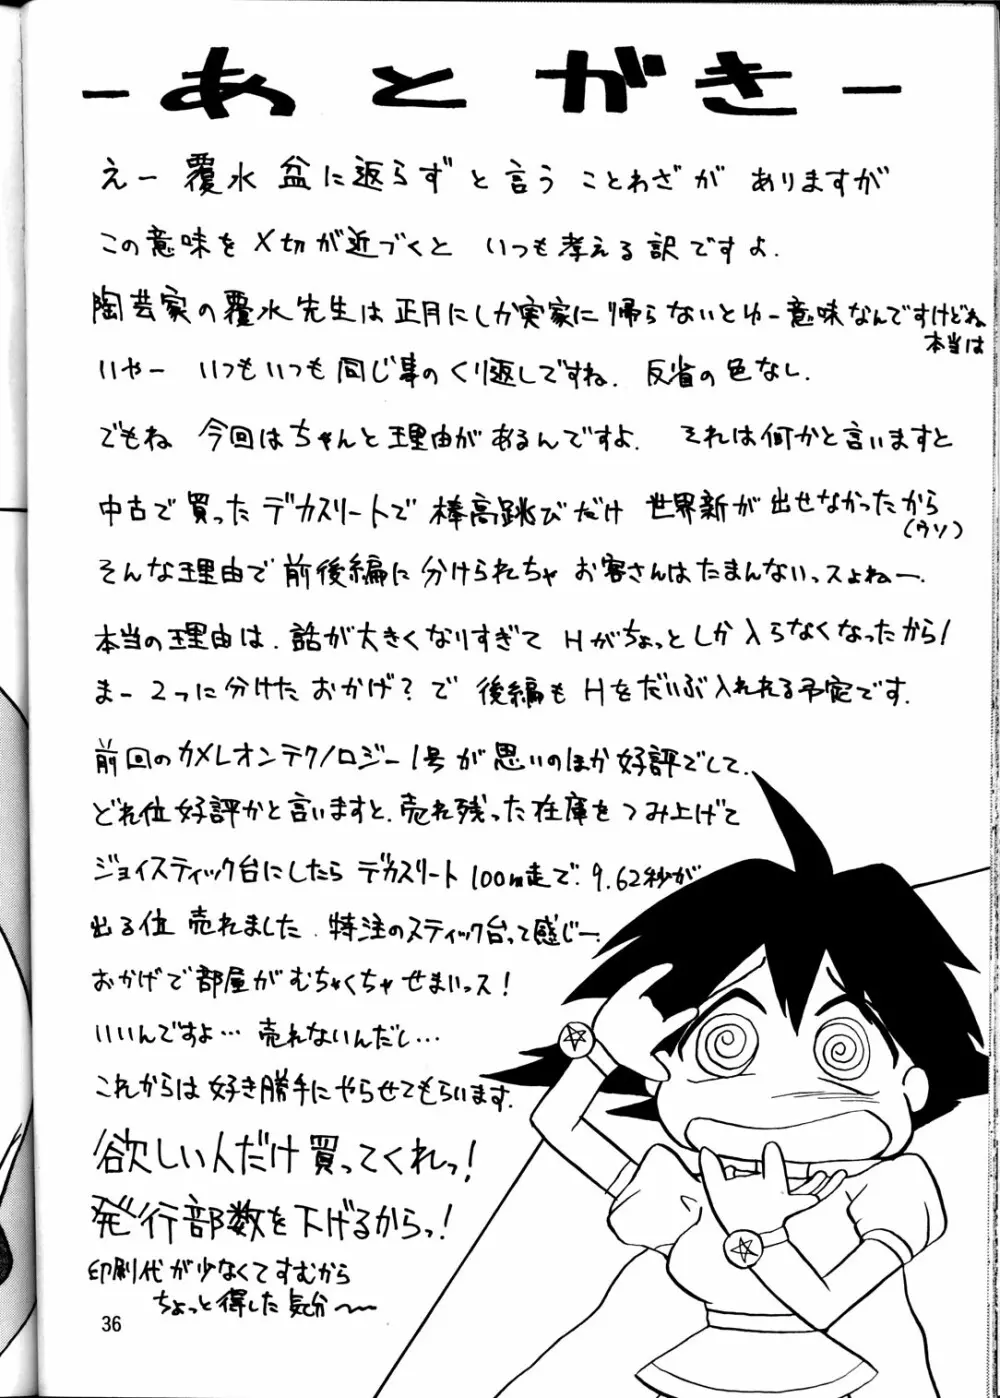 -あとがき-
えー 覆水 盆に返らず と言う ことわざが ありますが
この意味を〆切が近づくと いつも考える訳ですよ.
陶芸家の覆水先生は正月にしか実家に帰らないとゆー意味なんですけどね
本当は
いやー いつもいつも同じ事のくり返しですね. 反省の色なし.
でもね 今回はちゃんと理由があるんですよ. それは何かと言いますと
中古で買ったデカスリートで棒高跳びだけ 世界新が出せなかったから
(ウソ)
そんな理由で前後編に分けられちゃ お客さんはたまんないっスよねー.
本当の理由は、話が大きくなりすぎて Hがちょっとしか入らなくなったから!
まー2つに分けたおかげ?で 後編もHをだいぶ入れれる予定です.
前回のカメレオンテクノロジー1号が思いのほか好評でして、
どれ位好評かと言いますと、売れ残った在庫をつみ上げて
ジョイスティック台にしたら デカスリート100m走で、9.62秒が
出る位 売れました. 特注のスティック台って感じー.
おかげで部屋がむちゃくちゃせまいっス!
いいんですよ… 売れないんだし…
これからは好き勝手にやらせてもらいます.
欲しい人だけ買ってくれっ!
発行部数を下げるからっ!
印刷代が少なくてすむから
ちょっと得した気分〜〜
36